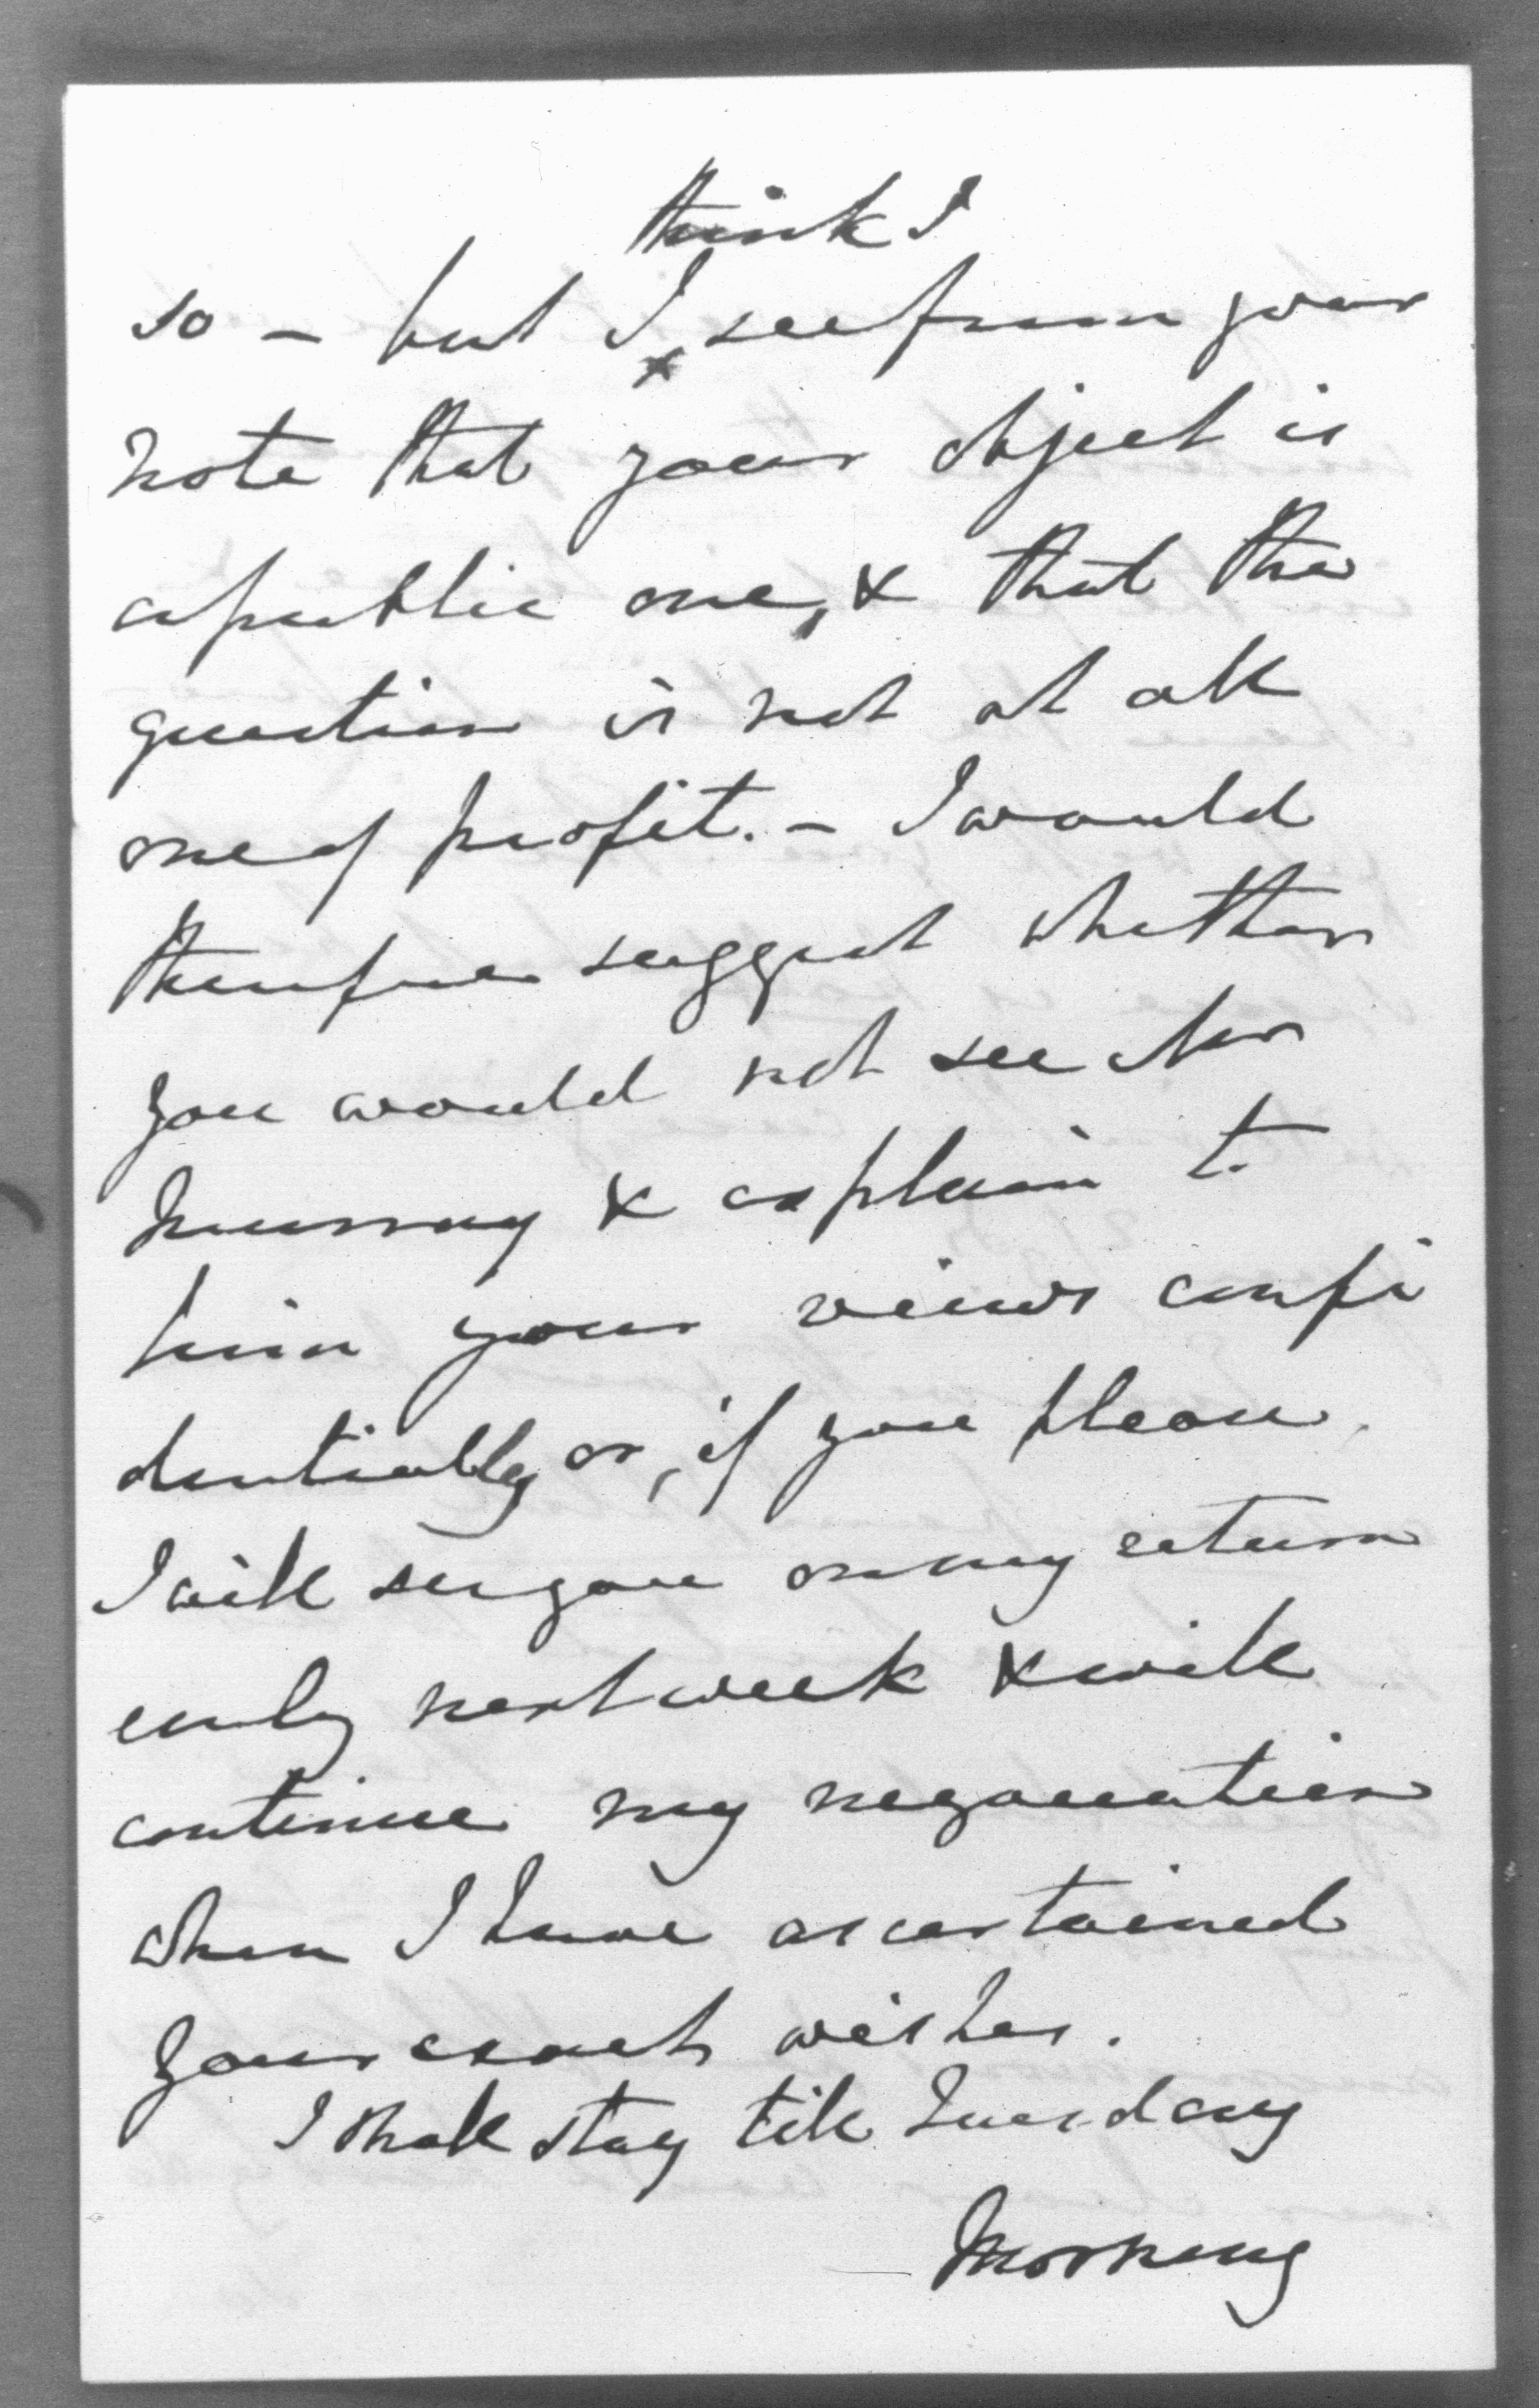 think I
so – but I see from your
note that your object is
a public one, & that the
question is not at all
one of profit. – I would
therefore suggest whether
you would not see Mr
Murray & explain to
him your views confi
dentially or, if you please,
I will see you on my return
early next week & will
continue my negociation
when I have ascertained
your exact wishes.
I shall stay till Tuesday
Morning